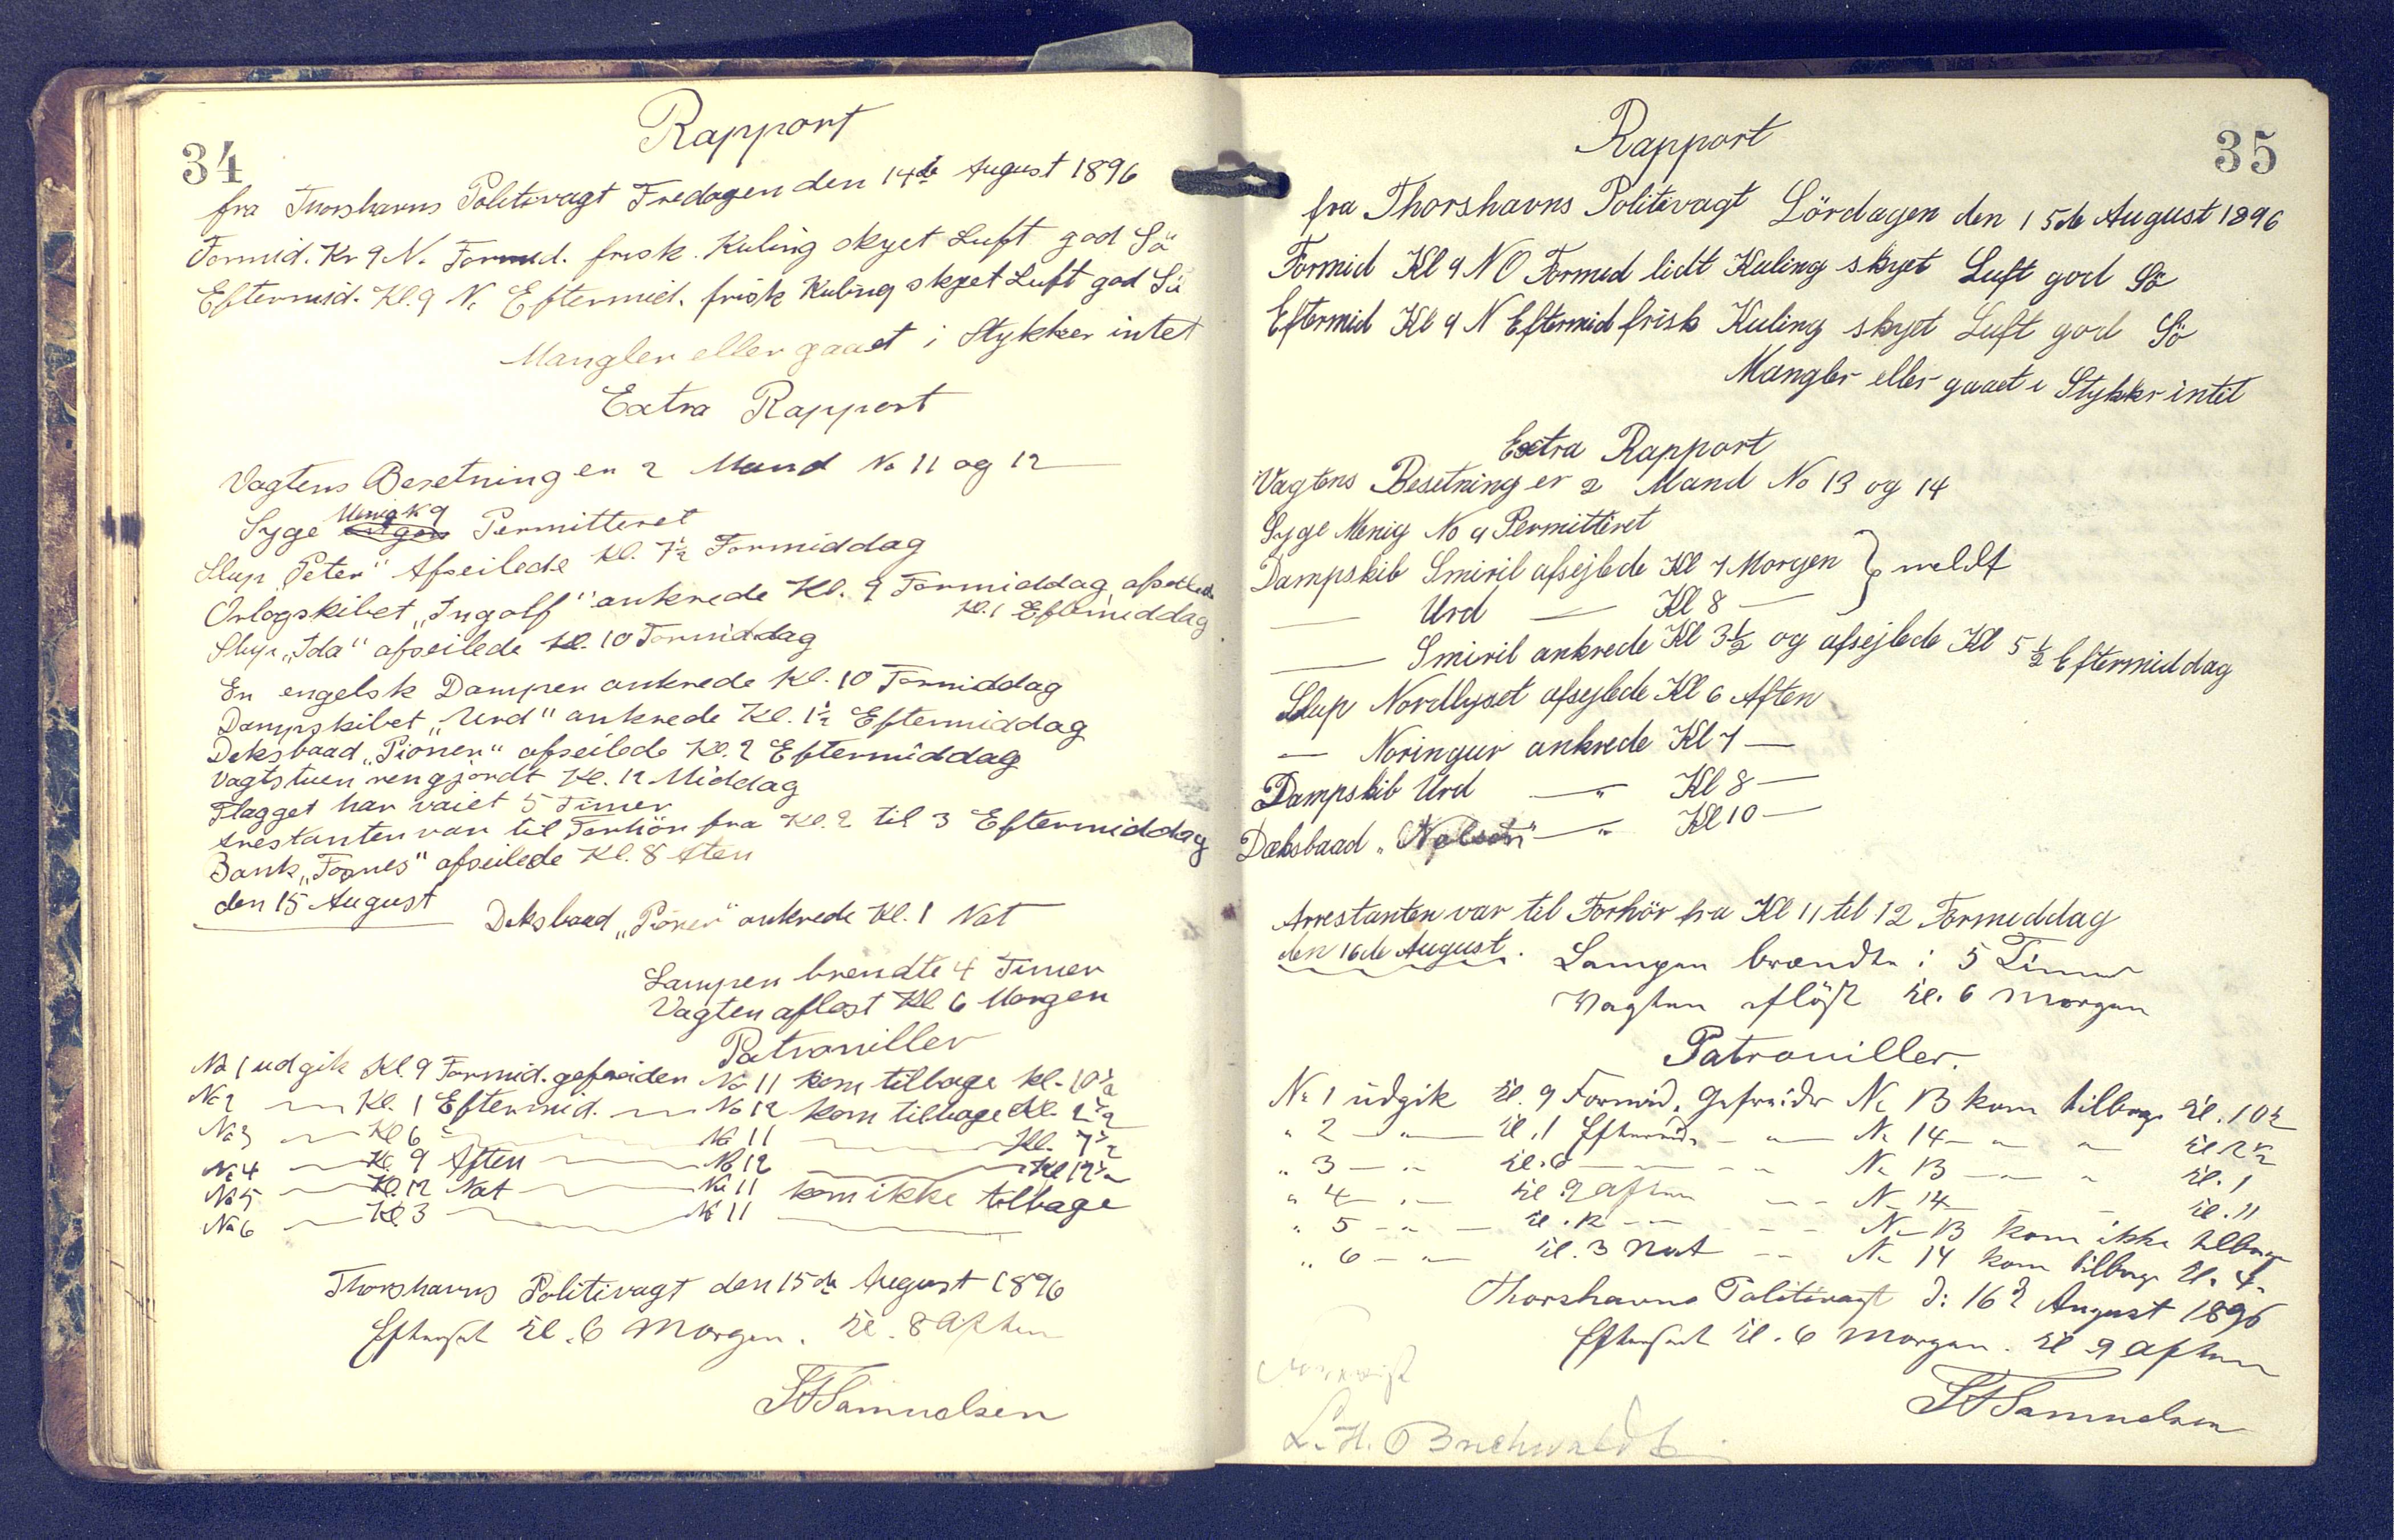 34
Rapport
fra Thorshavns Politivagt Fredagen den 14de August 1896
Formid. Kr 9 N. Formid. frisk. Kuling skyet Luft god Sö
Eftermid. Kl. 9 N. Eftermid. frisk Kuling skyet Luft god Sö
Mangler eller gaaet i Stykker intet
Extra Rapport
Vagtens Besetning er 2 Mand No 11 og 12
Sygе Menig N 9 Permitteret
Slup „Peter" Afseilede Kl. 7½ Formiddag
Orlogskibet „Ingolf" ankrede Kl. 9 Formiddag, afseilede
Kl. 1 Eftmiddag
Slup „Ida" afseilede Kl. 10 Formiddag
En engelsk Damper ankrede Kl. 10 Formiddag
Dampskibet „Urd" ankrede Kl. 1½ Eftermiddag
Deksbaad „Pioner" afseilede Kl. 2 Eftermiddag
Vagtstuen rengjördt Kl. 12 Middag
Flagget har vaiet 5 Timer
Arestanten var til Forhör fra Kl. 2 til 3 Eftermiddag
Bank „Fornes" afseilede Kl. 8 Aten
den 15 August
Deksbaad „Pioner" ankrede Kl. 1 Nat
Lampen brendte 4 Timer
Vagten aflöst Kl 6 Morgen
Patrouiller
No 1 udgik Kl. 9 Formid. gefreiden No 11 kom tilbage kl. 10½
No 2 — Kl. 1 Eftermid. — No 12 kom tilbage Kl. 2½
No 3 — Kl 6 — No 11 — Kl. 7½
No 4 — Kl. 9 Aften — No 12 — Kl 12½
No 5 — Kl. 12 Nat — No 11 kom ikke tilbage
No 6 — Kl 3 — No 11 —
Thorshavns Politivagt den 15de August 1896
Efterset Kl. 6 Morgen. Kl. 8 Aften
Samuelsen
35
Rapport
fra Thorshavns Politivagt Lördagen den 15de August 1896
Formid Kl 9 NO Formid lidt Kuling skyet Luft god Sö
Eftermid Kl 9 N Eftermid frisk Kuling skyet Luft god Sö
Mangler eller gaaet i Stykker intet
Extra Rapport
Vagtens Besetning er 2 Mand No 13 og 14
Syge Menig No 9 Permitteret
Dampskib Smiril afsejlede Kl 7 Morgen } meldt
— Urd — Kl 8 —
— Smiril ankrede Kl 3½ og afsejlede Kl 5½ Eftermiddag
Slup Nordlyset afsejlede Kl 6 Aften
— Noringur ankrede Kl 7 —
Dampskib Urd — „ Kl 8 —
Dæksbaad „Nelson" — „ Kl 10 —
Arrestanten var til Forhör fra Kl 11 til 12 Formiddag
den 16de August.
Lampen brændte i 5 Timer
Vagten aflöst Kl. 6 Morgen
Patrouiller.
No 1 udgik Kl. 9 Formid. Gefreider No 13 kom tilbage Kl. 10½
„ 2 — „ — Kl. 1 Eftermid. — „ — No 14 — „ — „ Kl 2½
„ 3 — „ Kl. 6 — No 13 — „ Kl. 1
„ 4 — „ — Kl 9 Aften — No 14 — Kl. 11
„ 5 — „ — Kl. 12 — No 13 kom ikke tilbage
„ 6 — „ — Kl. 3 Nat — No 14 kom tilbage Kl. 4.
Thorshavns Politivagt d: 16d August 1896
Efterset Kl. 6 Morgen. Kl 9 Aften
Samuelsen
L. H. Buchwaldt